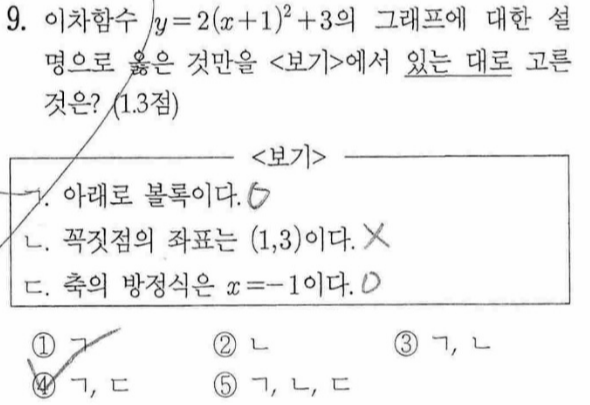 9. 이차함수 y=2(x+1)²+3의 그래프에 대한 설
명으로 옳은 것만을 <보기>에서 있는 대로 고른
것은? (1.3점)
<보기>
ㄱ. 아래로 볼록이다. O
ㄴ. 꼭짓점의 좌표는 (1,3)이다. X
ㄷ. 축의 방정식은 x=-1이다. O
① ㄱ ② ㄴ ③ ㄱ, ㄴ
④ ㄱ, ㄷ ⑤ ㄱ, ㄴ, ㄷ